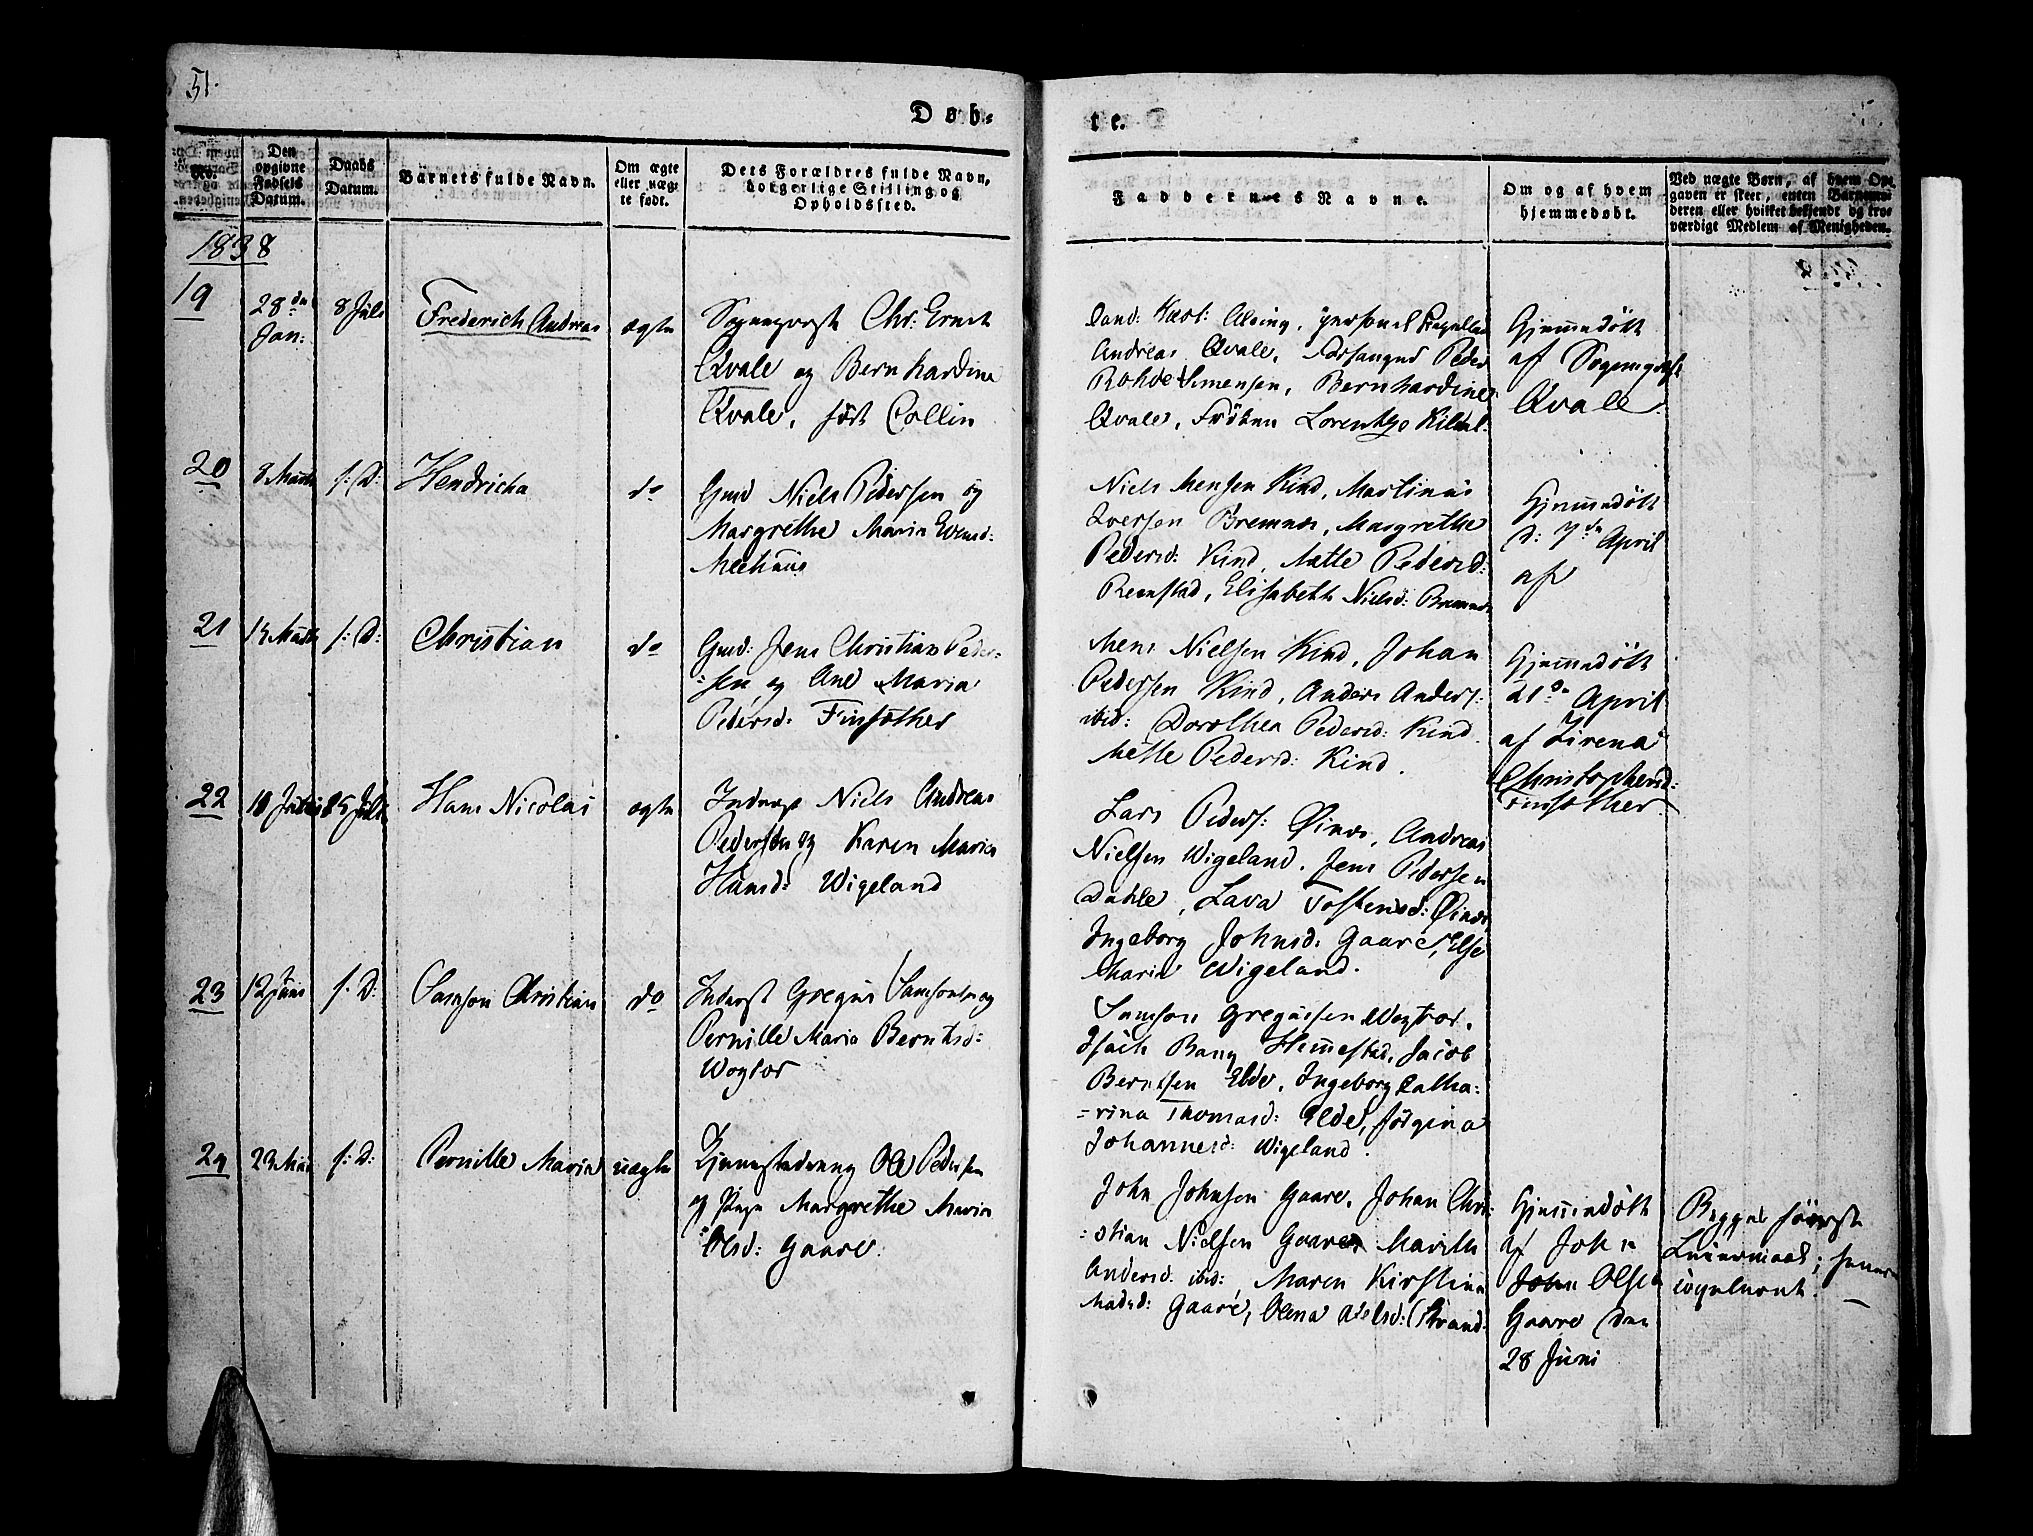 51.
Døb-
te.
No.
Den
opgivne
Fødsels
Datum.
Daabs
Datum.
Barnets fulde Navn.
Om ægte
eller uæg-
te født.
Dets Forældres fulde Navn,
borgerlige Stilling og
Opholdssted.
Faddernes Navne.
Om og af hvem
hjemmedøbt.
Ved uægte Børn, af hvem Op-
gaven er skeet, enten Barnemo-
deren eller hvilket bekjendt og tro-
værdigt Medlem af Menigheden.
1838
19
28de
Jan:
8 Juli
Frederich Andreas
ægte
Sogneprest Chr: Ernst
Qvale og Bernhardine
Qvale, født Collin
Cand: Alsing, personel Capellan
Andreas Qvale, Peder
Rohde Simensen, Bernhardine
Qvale, Frøken Lorentze
Hjemmedøbt
af Sogneprest
Qvale.
20
8 Marts
s: D:
Hendricha
do
Gmd Niels Pedersen og
Margrethe Maria Evensd:
Meehuus
Niels Mensen Kind, Martinus
Iversen Bremnes, Margrethe
Pedersd: Kind, Mette Pedersd:
Reenstad, Elisabeth Nielsd: Bremnes
Hjemmedøbt
d: 7de April
af
21
s: D:
Christian
do
Gmd: Jens Christian Peder-
-sen og Ane Maria
Pedersd: Finsæther
Mens Nielsen Kind, Johan
Pedersen Kind, Anders Anders:
ibid: Dorothea Pedersd: Kind
Mette Pedersd: Kind.
Hjemmedøbt
21de April
af Zirena
Christophersd:
Finsæther.
22
18 Juni
25 Juli
Hans Nicolai
ægte
Inderst Niels Andreas
Pedersen og Karen Maria
Hansd: Wigeland
Lars Peders: Øines, Andreas
Nielsen Wigeland, Jens Pedersen
Dahle, Lava Tostensd: Øines,
Ingeborg Johnsd: Gaare, Else
Maria Wigeland.
23
12 Juni
s: D:
Samson Christian
do
Inderst Gregus Samsonsen og
Pernille Maria Berntsd:
Wogtor
Samson Gregussen Wogtor,
Isach Bang Hemmestad, Jacob
Berntsen Elde, Ingeborg Catha-
-rina Thomasd: Elde, Jørgina
Johannesd: Wigeland.
24
23 Mai
s: D:
Pernille Maria
uægte
Ole Pedersen
og Pige Margrethe Maria
Olsd: Gaare.
John Johnsen Gaare, Johan Chri-
-stian Nielsen Gaare, Marith
Andersd: ibid: Maren Kirstine
Madsd: Gaare, Olena Strand.
Hjemmedøbt
af John
Olsen
Gaare den
28 Juni
Begges første
Leiermaal;